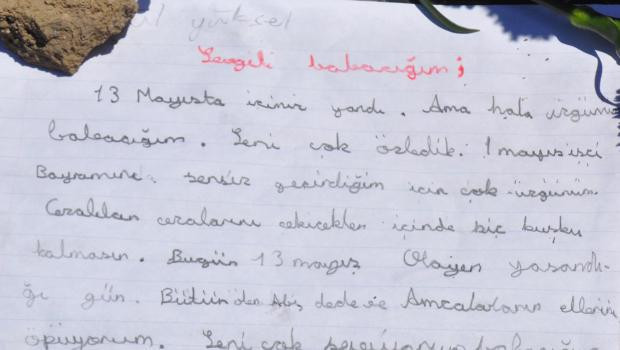 yüksel
Sevgili babacığım;
13 Mayısta içimiz yandı. Ama hala üzgünü
babacığım. Seni çok özledik. 1 mayıs işçi
Bayramını sensiz geçirdiğim için çok üzgünüm.
Cezalılar cezalarını çekicekler içinde hiç kuşku
kalmasın. Bugün 13 mayıs Olayın yaşandı-
ğı gün. Bütün dede ve Amcaların ellerini
öpüyorum. Seni çok seviyorum